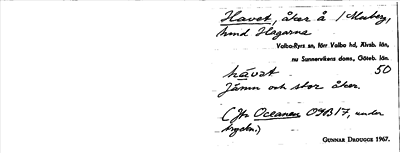 Havet, åker å 1 Морberg,
hemd Hagarna
Valbo-Ryrs sn, förr Valbo hd, Älvsb. län,
nu Sunnervikens doms, Göteb. län.
hävat 50
Jämn och stor åker.
(Jfr Oceanen OGB 17, under
tryckn.)
GUNNAR DROUGGE 1967.